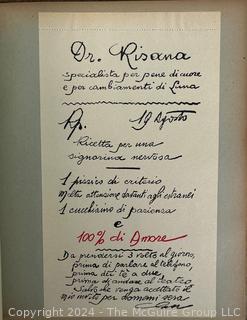 Dr. Risana
specialista per pene di cuore
e per cambiamenti di Luna
Rp. 19 Agosto
Ricetta per una
signorina nervosa
1 pizzico di criterio
molta attenzione davanti agli estranei
1 cucchiaino di pazienza
e
100% di Amore
Da prendersi 3 volte al giorno,
prima di parlare al telefono,
prima dei tè a due,
prima di andare al teatro
venga accettato il
mio invito per domani sera
Copyright 2024 - The McGuire Group LLC